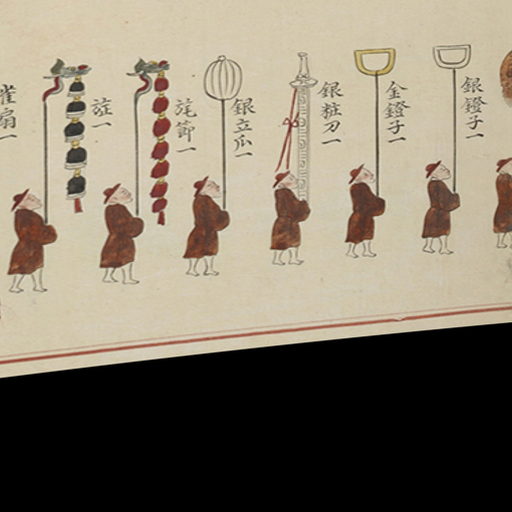 銀鐙子一
金鐙子一
銀粧刀一
銀立瓜一
旄節一
旌一
雀扇一